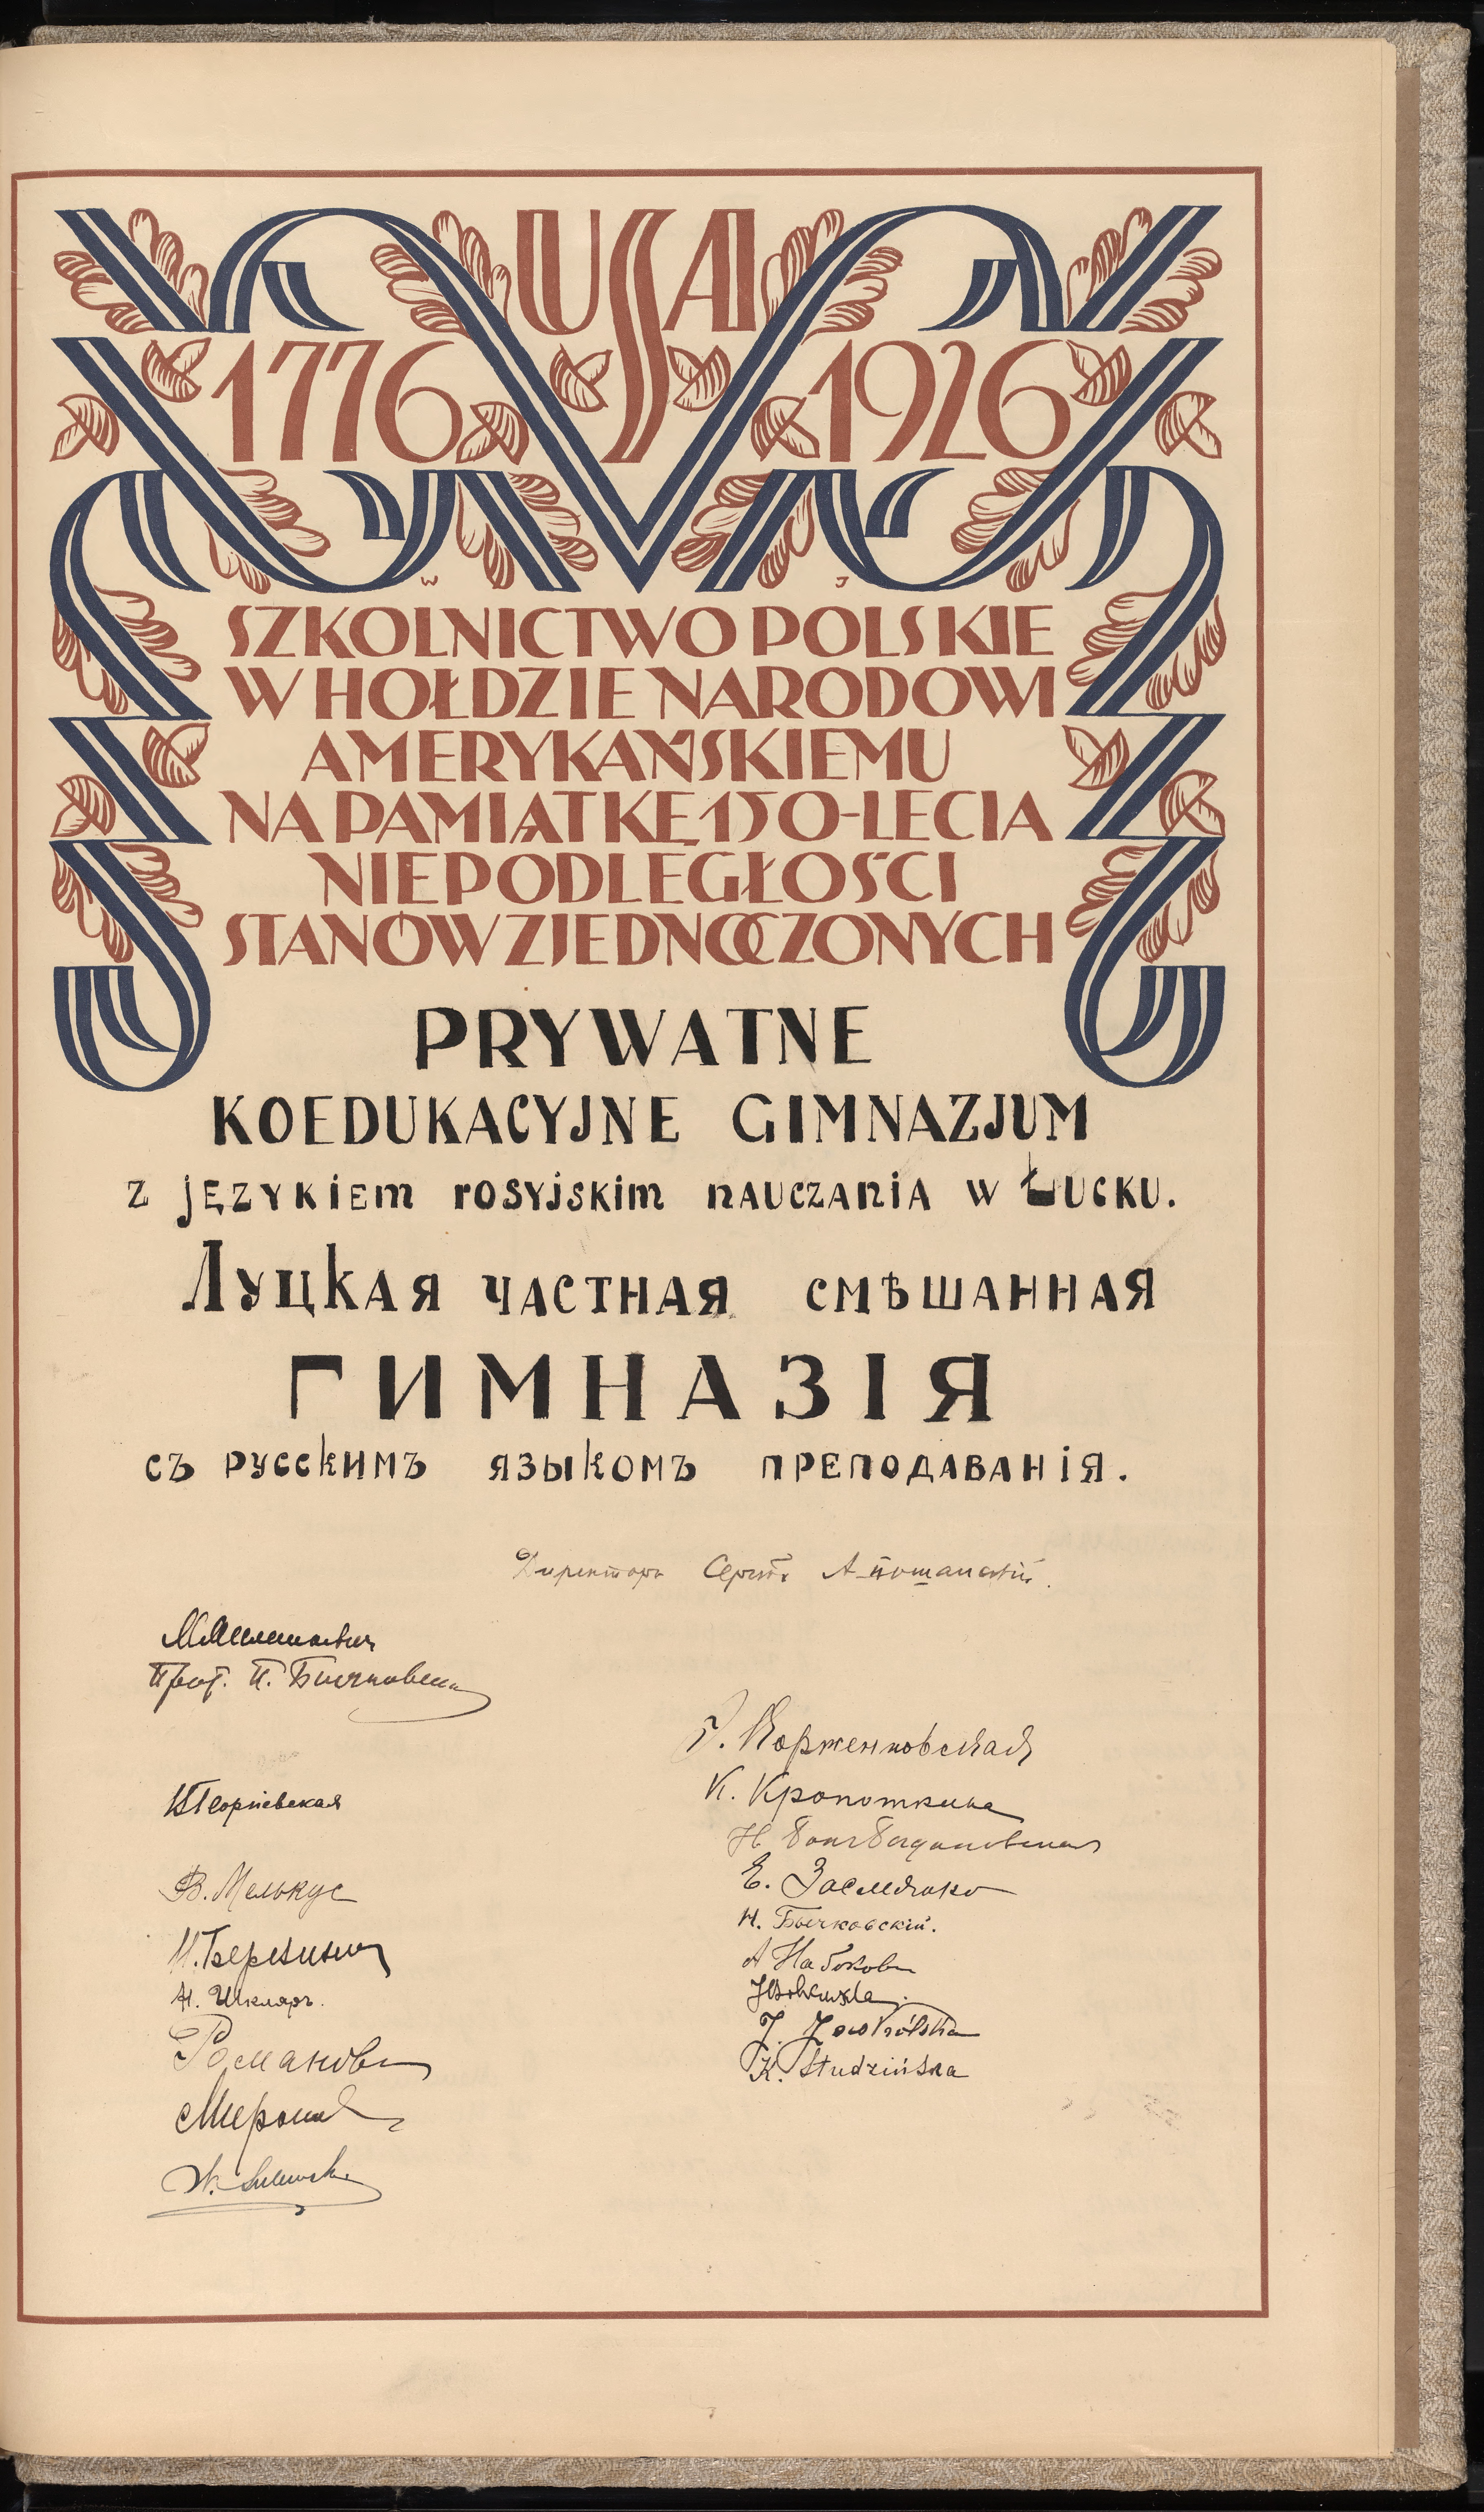 USA
1776 1926
W J
SZKOLNICTWO POLSKIE
W HOŁDZIE NARODOWI
AMERYKAŃSKIEMU
NA PAMIĄTKĘ 150-LECIA
NIEPODLEGŁOŚCI
STANÓW ZJEDNOCZONYCH
PRYWATNE
KOEDUKACYJNE GIMNAZJUM
z językiem rosyjskim nauczania w Łucku.
Луцкая частная смѣшанная
ГИМНАЗІЯ
съ русскимъ языкомъ преподаванія.
Директоръ Сергѣй
Прот. П. Бычковскій
Георгіевская
В. Мелькус
И. Березина
Н. Шкляръ.
Романов
Мирон
Г. Корженковская
К. Кропоткина
Н.
Е. Засмянко
Н. Бычковскій.
А Набоков
J.
K. Studzińska